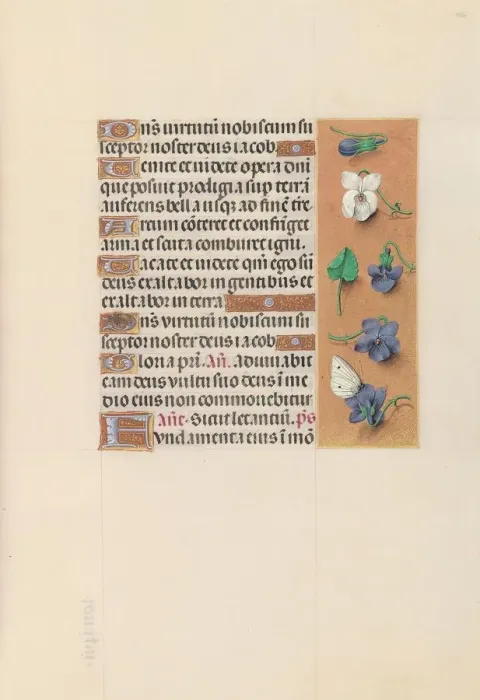 Dn̄s uirtutū nobiscum su
sceptor noster deus iacob.
Uenite et uidete opera dn̄i
que posuit prodigia sup terrā
auferens bella usq̃ ad finē tre
Arcum cōteret et confringet
arma et scuta comburet igni.
Uacate et uidete qm̄ ego sū
deus exaltabor in gentibus et
exaltabor in terra
Dn̄s virtutū nobiscum su
sceptor noster deus iacob.
Gloria pr̄i. Añ. adiuuabit
eam deus vultu suo deus ī me
dio eius non commouebitur
Añe. Sicut letantiū. p̄s
Fundamenta eius ī mō